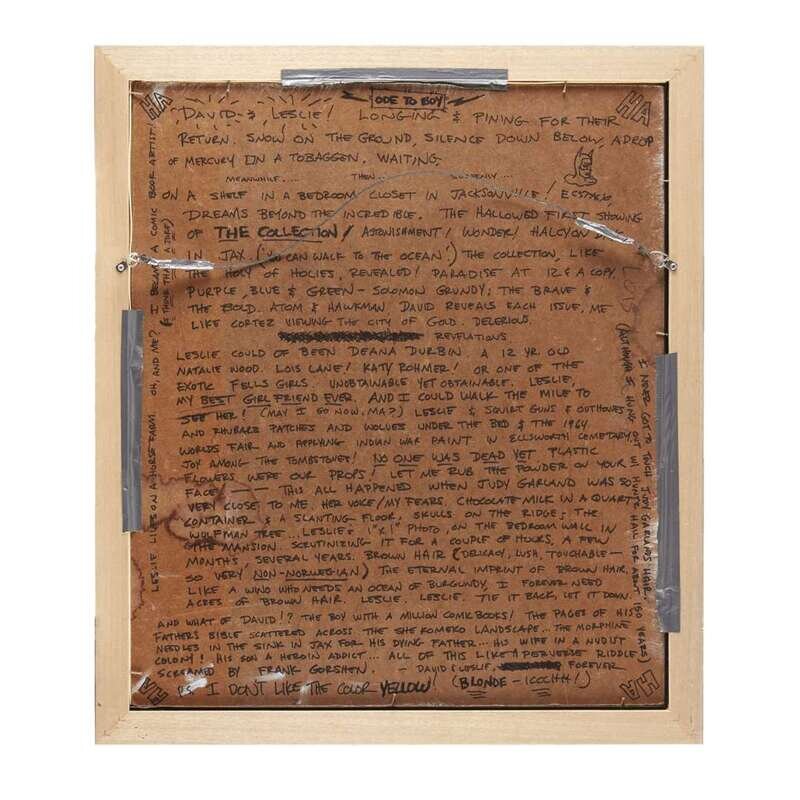 HA
ODE TO BOY
HA
DAVID & LESLIE! LONGING & PINING FOR THEIR
RETURN. SNOW ON THE GROUND, SILENCE DOWN BELOW, A DROP
OF MERCURY ON A TOBAGGEN, WAITING.
MEANWHILE..... THEN... SUDDENLY...
ON A SHELF IN A BEDROOM CLOSET IN JACKSONVILLE! ECSTASY,
DREAMS BEYOND THE INCREDIBLE. THE HALLOWED FIRST SHOWING
OF THE COLLECTION! ASTONISHMENT! WONDER! HALCYON
IN JAX. ('YOU CAN WALK TO THE OCEAN') THE COLLECTION, LIKE
THE HOLY OF HOLIES, REVEALED! PARADISE AT 12¢ A COPY.
PURPLE, BLUE & GREEN - SOLOMON GRUNDY, THE BRAVE &
THE BOLD. ATOM & HAWKMAN. DAVID REVEALS EACH ISSUE, ME
LIKE CORTEZ VIEWING THE CITY OF GOLD. DELERIOUS.
REVELATIONS
LESLIE COULD OF BEEN DEANA DURBIN A 12 YR. OLD
NATALIE WOOD. LOIS LANE! KATY ROHMER! OR ONE OF THE
EXOTIC FELLS GIRLS. UNOBTAINABLE YET OBTAINABLE. LESLIE,
MY BEST GIRL FRIEND EVER. AND I COULD WALK THE MILE TO
SEE HER! (MAY I GO NOW, MA?) LESLIE & SQUIRT GUNS & OUTHOUSES
AND RHUBARB PATCHES AND WOLVES UNDER THE BED & THE 1964
WORLDS FAIR AND APPLYING INDIAN WAR PAINT IN ELLSWORTH CEMETARY.
JOY AMONG THE TOMBSTONES! NO ONE WAS DEAD YET PLASTIC
FLOWERS WERE OUR PROPS! LET ME RUB THE POWDER ON YOUR
FACE — THIS ALL HAPPENED WHEN JUDY GARLAND WAS SO
VERY CLOSE TO ME. HER VOICE/MY FEARS. CHOCOLATE MILK IN A QUART
CONTAINER & A SLANTING FLOOR, SKULLS ON THE RIDGE; THE
WULFMAN TREE... LESLIE'S 1"X1" PHOTO, ON THE BEDROOM WALL IN
THE MANSION. SCRUTINIZING IT FOR A COUPLE OF HOURS, A FEW
MONTHS, SEVERAL YEARS. BROWN HAIR (DELICACY, LUSH, TOUCHABLE—
SO VERY NON-NORWEGIAN) THE ETERNAL IMPRINT OF BROWN HAIR.
LIKE A WINO WHO NEEDS AN OCEAN OF BURGUNDY, I FOREVER NEED
ACRES OF BROWN HAIR. LESLIE. LESLIE. TIE IT BACK, LET IT DOWN.
AND WHAT OF DAVID!? THE BOY WITH A MILLION COMIC BOOKS! THE PAGES OF HIS
FATHERS BIBLE SCATTERED ACROSS THE SHEKOMEKO LANDSCAPE... THE MORPHINE
NEEDLES IN THE SINK IN JAX FOR HIS DYING FATHER... HIS WIFE IN A NUDIST
COLONY! HIS SON A HEROIN ADDICT... ALL OF THIS LIKE A PERVERSE RIDDLE
SCREAMED BY FRANK GORSHEN. -DAVID & LESLIE, FOREVER
P.S. I DON'T LIKE THE COLOR YELLOW! (BLONDE - ICCCHH!)
HA
HA
LESLIE LIVES ON A HORSE FARM. OH, AND ME? I BECAME A COMIC BOOK ARTIST!
I NEVER GOT TO TOUCH JUDY GARLANDS HAIR.